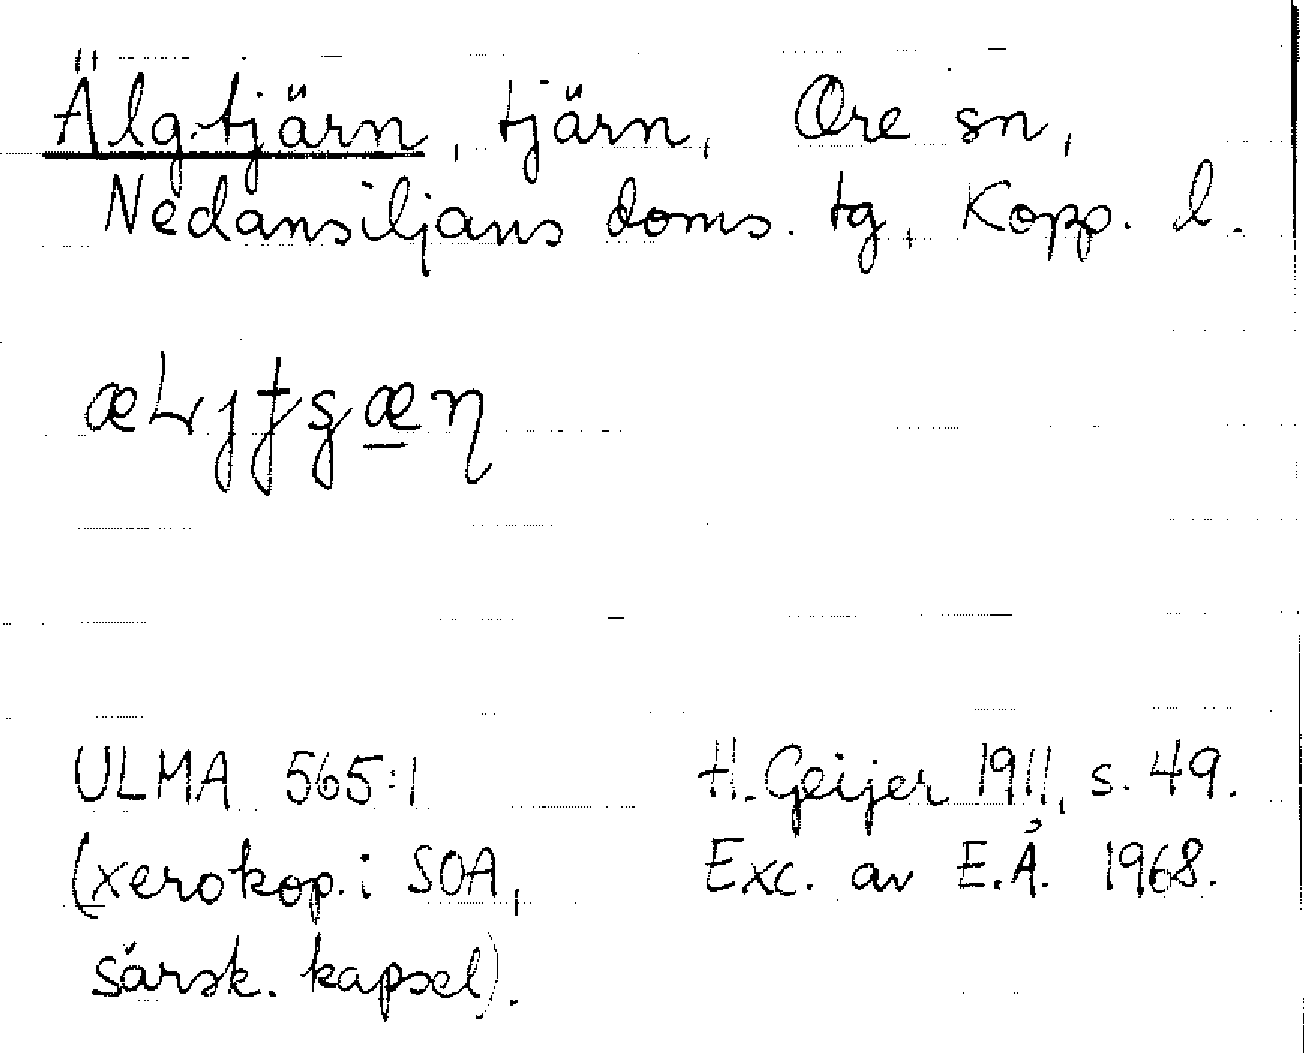 Älg-tjärn, tjärn, Ore sn,
Nedansiljans doms. tg, Kopp. l.
ULMA 565:1
(xerokop. i SOA,
särsk. kapsel).
H. Geijer 1911, s. 49.
Exc. av E.Å. 1968.